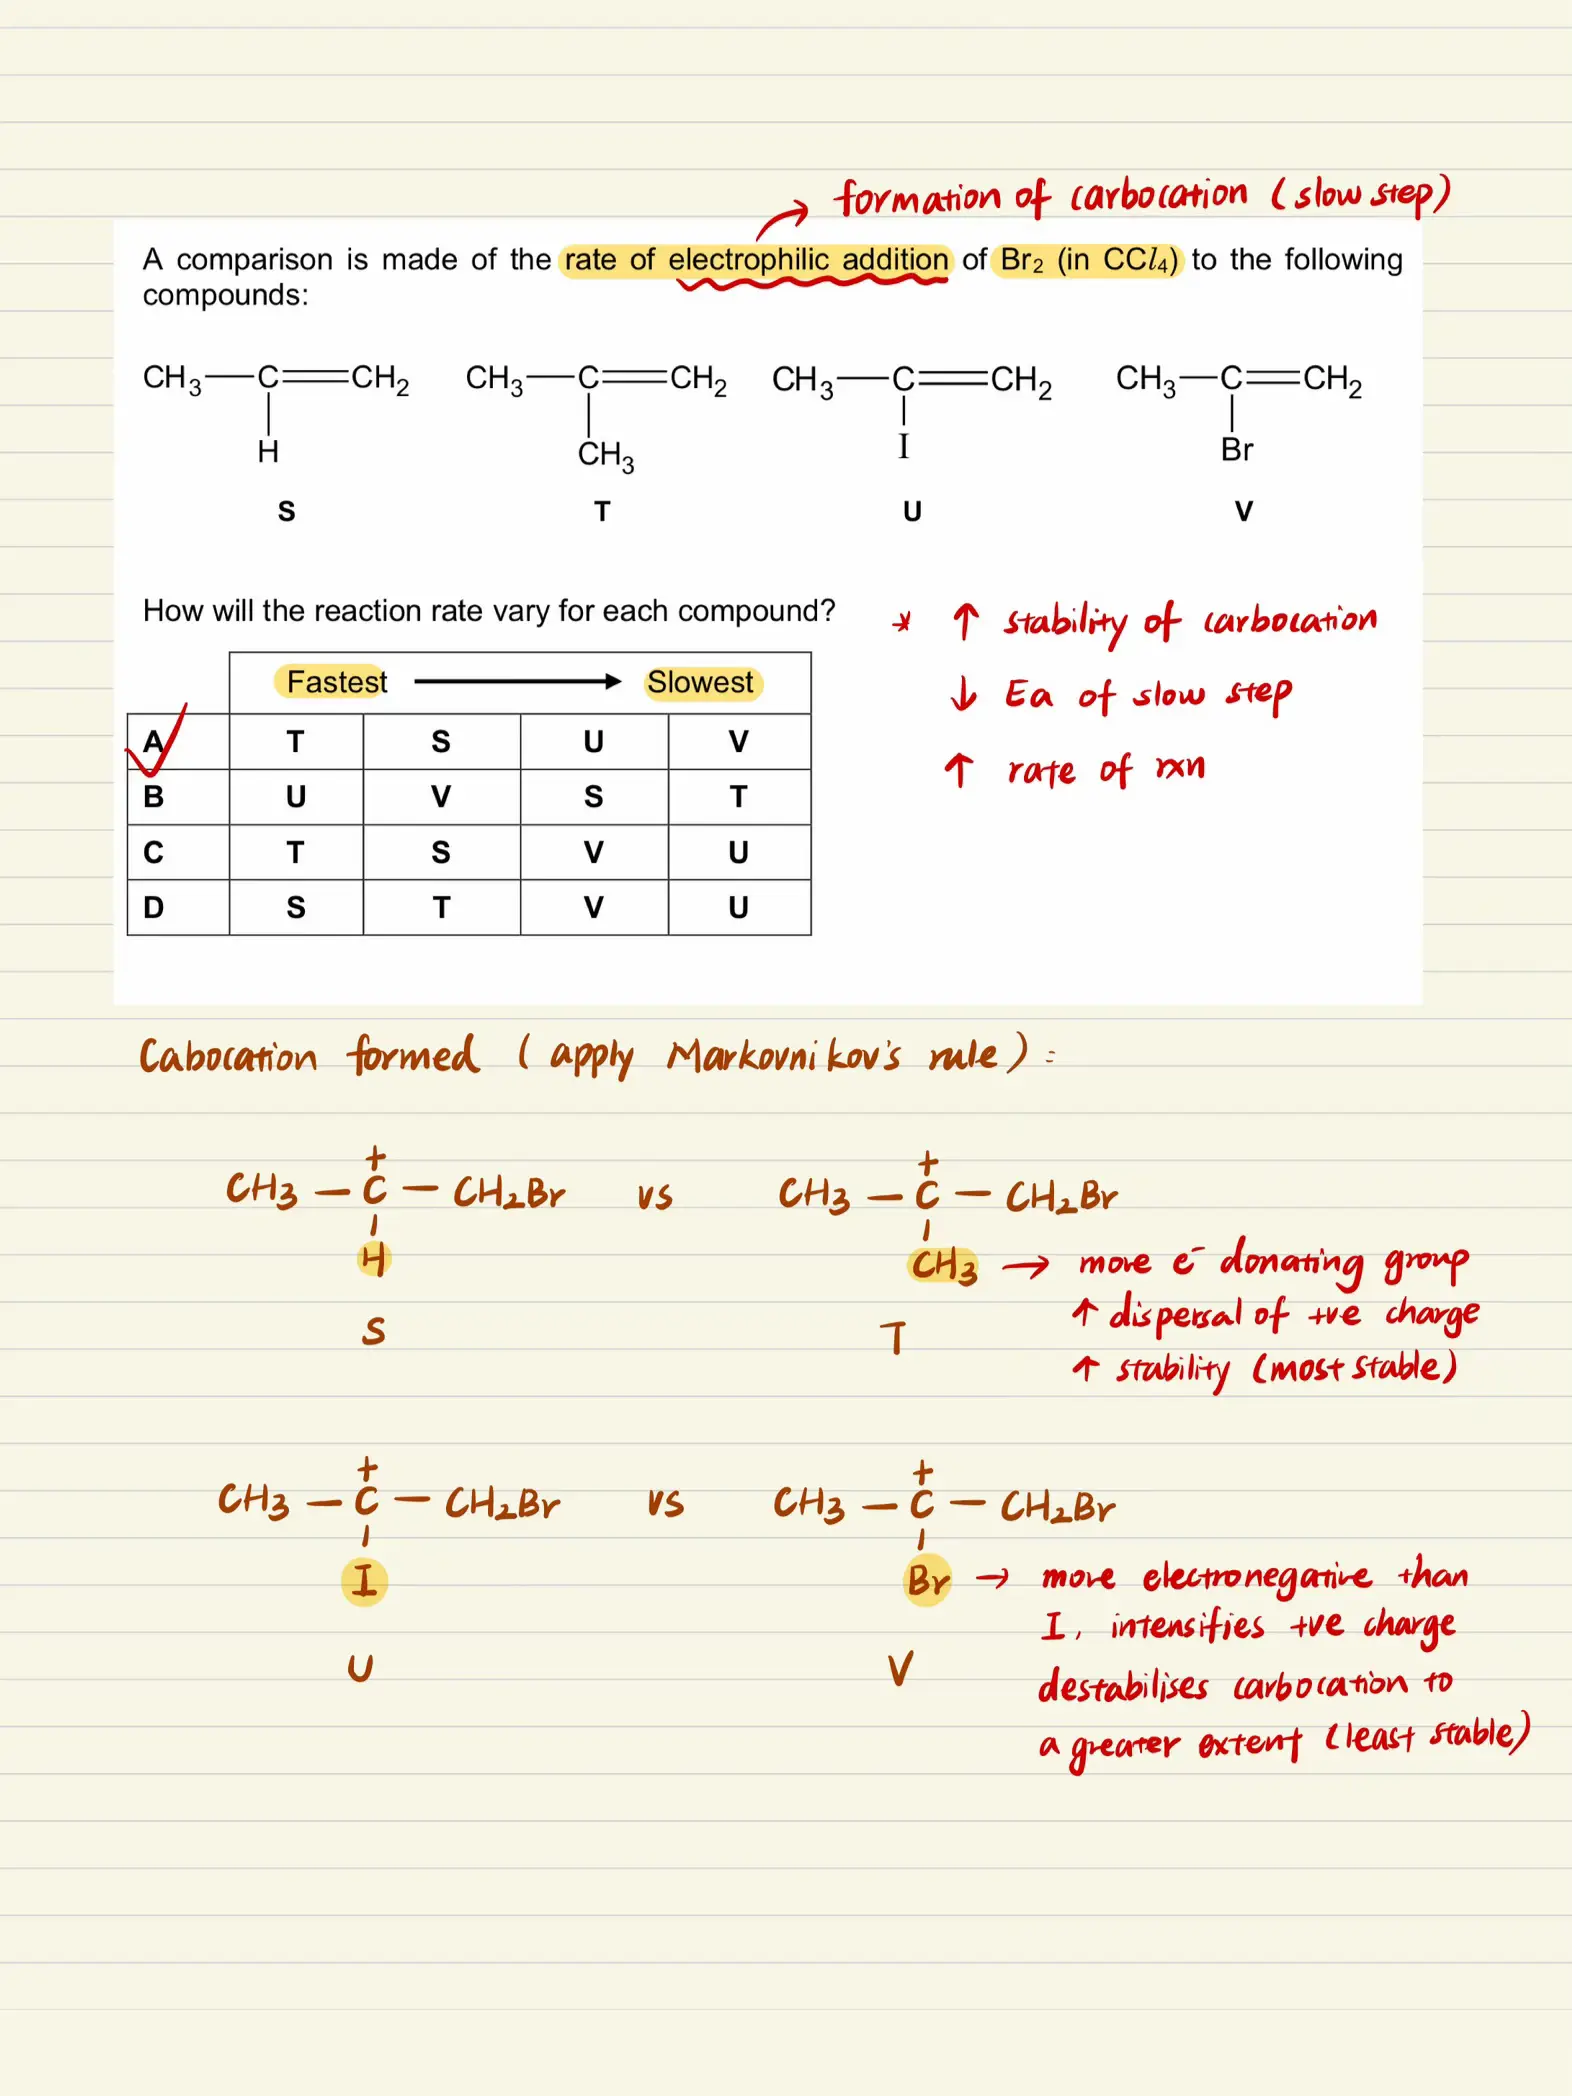 formation of carbocation (slow step)
A comparison is made of the rate of electrophilic addition of Br2 (in CCl4) to the following
compounds:
CH3—C═CH2 CH3—C═CH2 CH3—C═CH2 CH3—C═CH2
H CH3 I Br
S T U V
How will the reaction rate vary for each compound?
* ↑ stability of carbocation
↓ Ea of slow step
↑ rate of rxn
Fastest → Slowest
A T S U V
B U V S T
C T S V U
D S T V U
Cabocation formed (apply Markovnikov's rule) :
+ +
CH3 — C — CH2Br vs CH3 — C — CH2Br
H CH3 → more e⁻ donating group
↑ dispersal of +ve charge
S T
↑ stability (most stable)
+ +
CH3 — C — CH2Br vs CH3 — C — CH2Br
I Br → more electronegative than
I, intensifies +ve charge
U V
destabilises carbocation to
a greater extent (least stable)